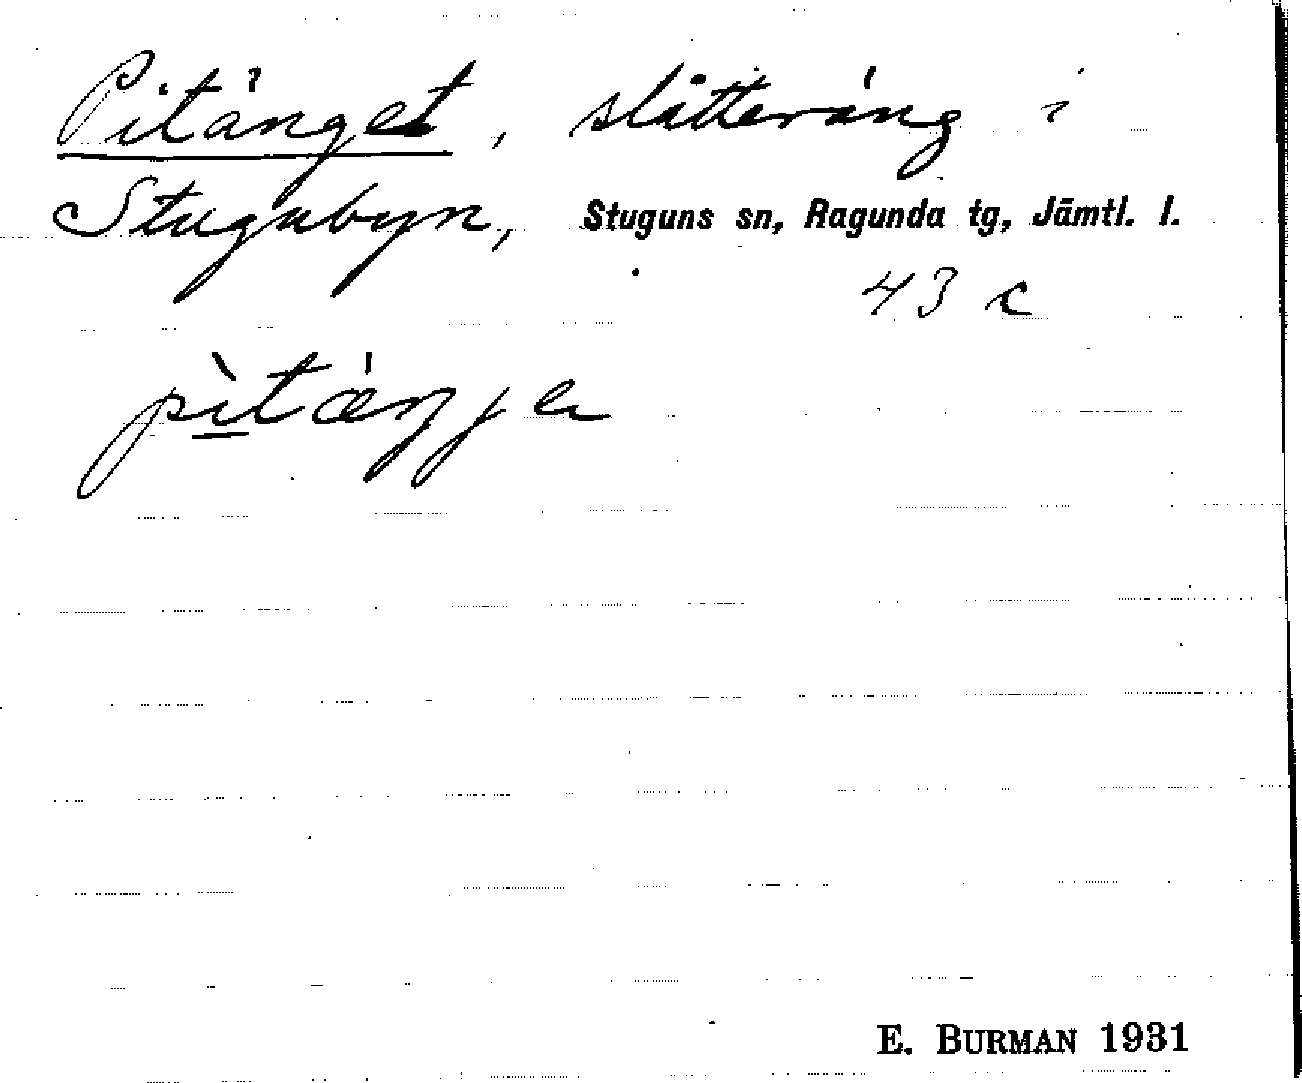 Pitänget, slåtteräng i
Stugubyn, Stuguns sn, Ragunda tg, Jämtl. l.
43 c
pìtæŋjɐ
E. BURMAN 1931